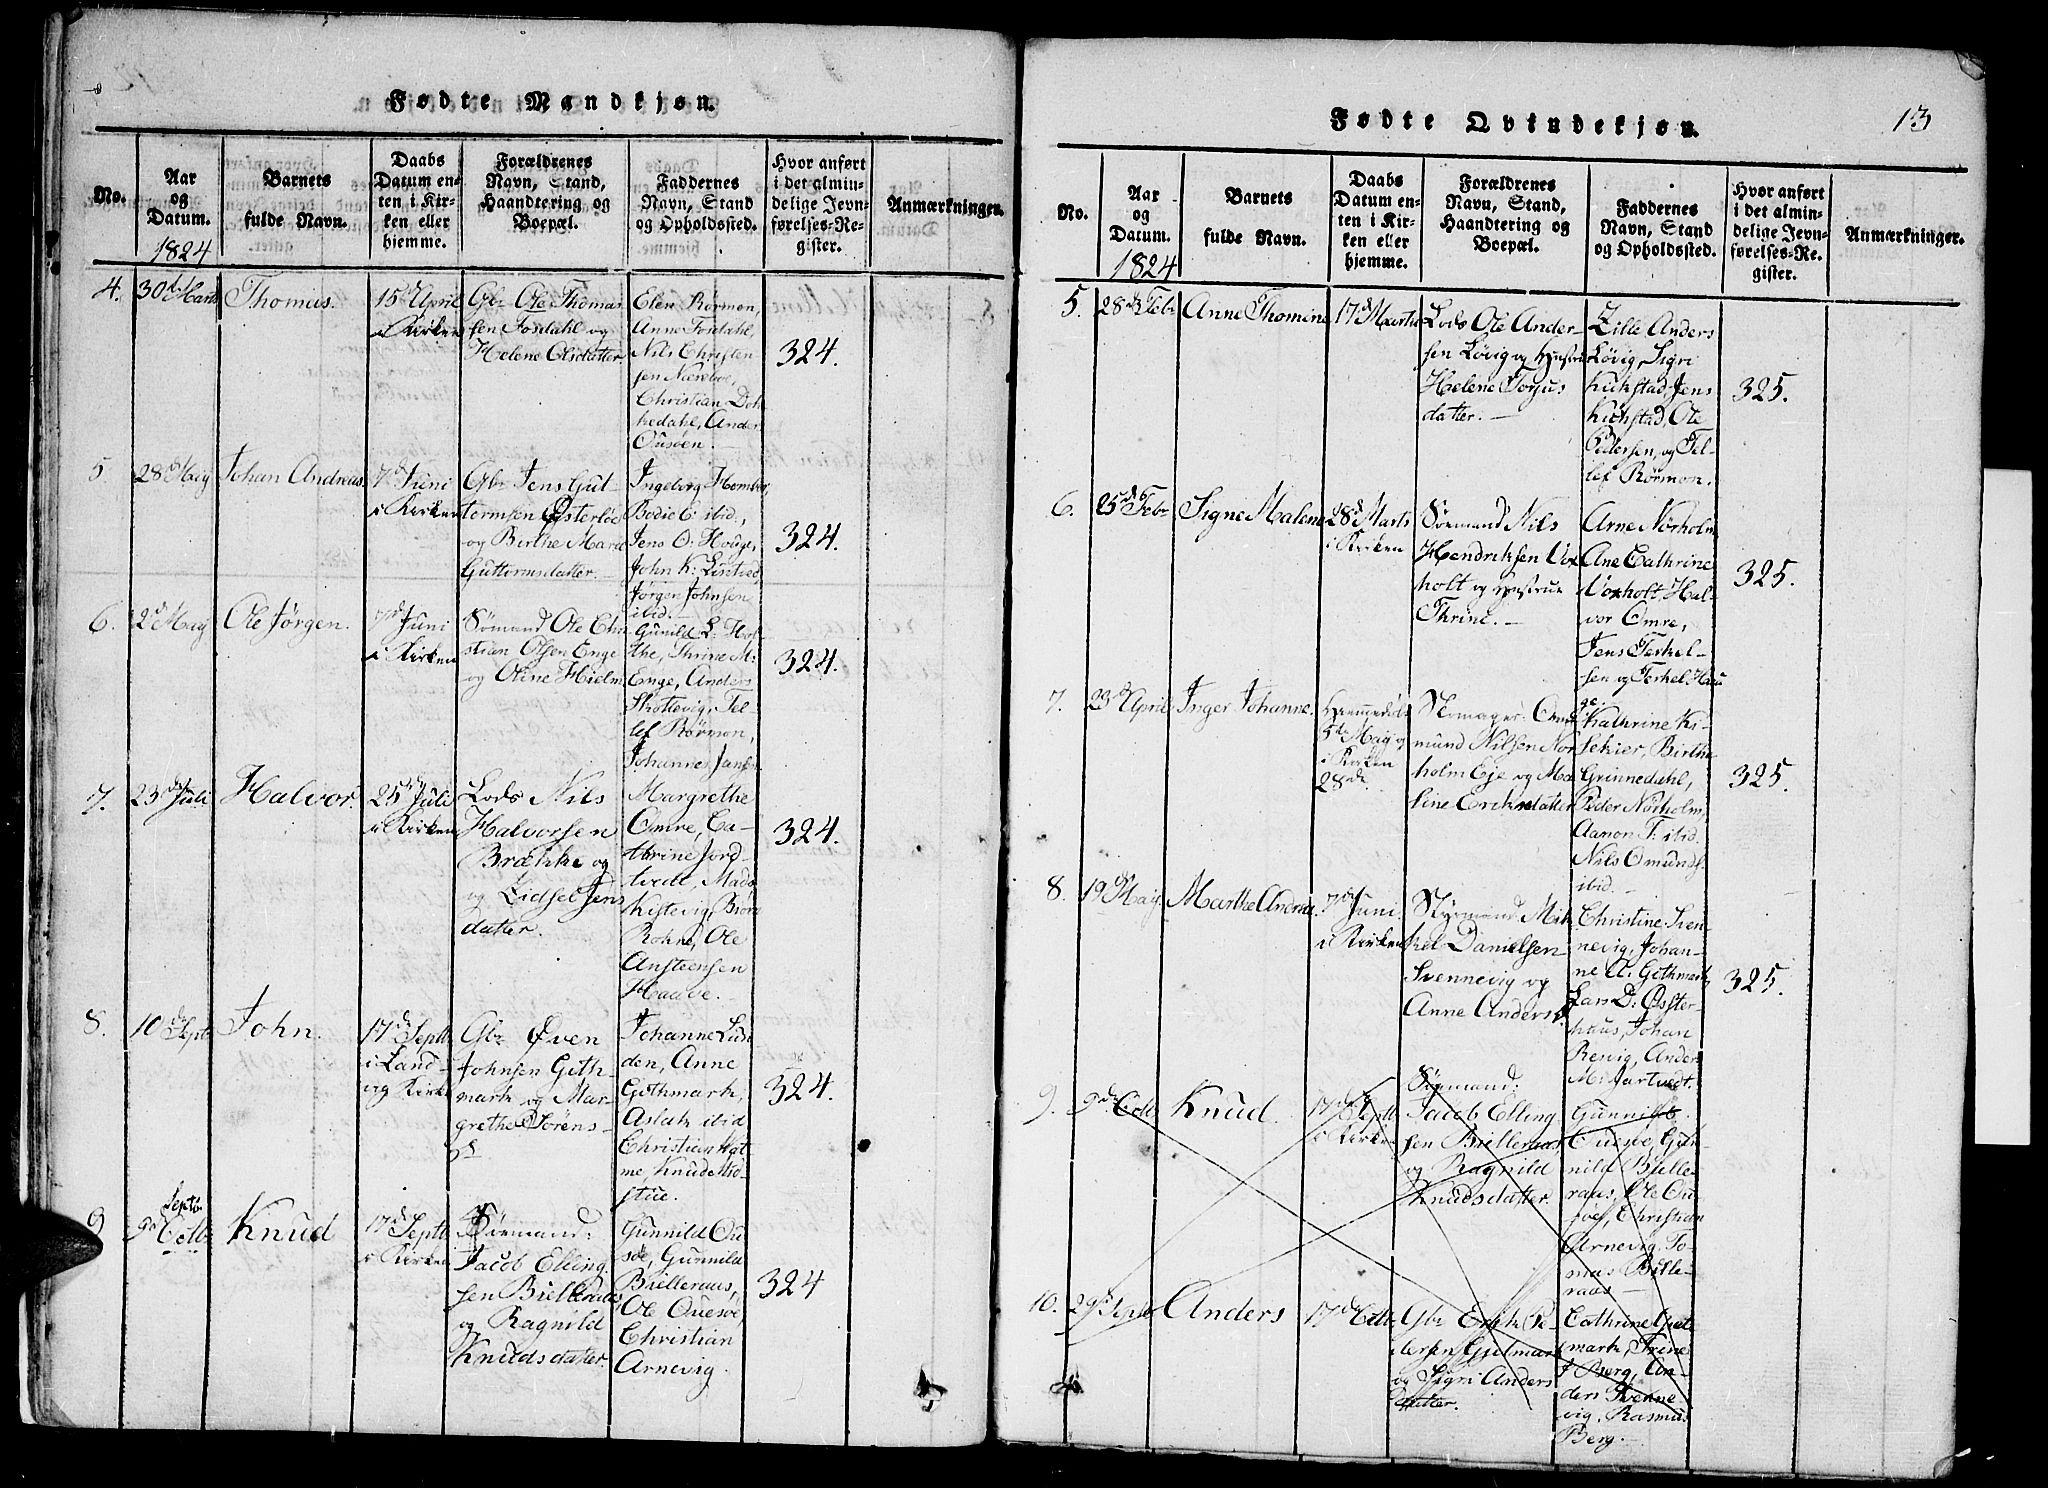 Fødte Mandkjøn.
No.
Aar
og
Datum.
1824
Barnets
fulde Navn.
Daabs
Datum en-
ten i Kir-
ken eller
hjemme.
Forældrenes
Navn, Stand,
Haandtering og
Boepæl.
Faddernes
Navn, Stand
og Opholdssted.
Hvor anført
i det almin-
delige Jevn-
førelses-Re-
gister.
Anmærkninger.
4.
30d Marts
Thomas.
15d April
i Kirken
Gbr Ole Thomas
sen Fosdahl og
Helene Olsdatter
Elen Rørmon,
Anne Fosdahl,
Nils Christen
sen Næreboe,
Christian Dok
kedahl, Anders
Ousöen.
324.
5
28d Maij
Johan Andreas.
7d Juni
i Kirken
Gbr Jens Gut-
tormsen Østerhoe
og Birthe Marie
Guttormsdatter.
Ingeborg Homber
Bodie G: ibid.,
Jens O: Hodge,
John K: Lintved
Jørgen Johnsen
ibid.
324.
6.
2d Maij
Ole Jørgen.
7d Juni
i Kirken
Sømand Ole Chri
stian Olsen Enge
og Oline Hielm
Gunild L: Hol
the, Thrine M:
Enge, Anders
Skottevig, Tel-
lef Rørmon,
Johannes Jansen
324.
7.
23de Juli
Halvor.
25d Juli
i Kirken
Lods Nils
Halvorsen
Brække og
og Lidsel Jens
datter.
Margrethe
Omre, Ca-
thrine Jord-
tvedt, Mads
Kistevig, Biørn
Rohne, Ole
Ansteensen
Haave.
324.
8.
10d Septb
John.
17d Septb
i Land-
vig Kirke
Gbr Øven
Johnsen Geth-
mark og Mar-
grethe Sörens-
d
Johanne Lun
den, Anne
Gethmark,
Aslak ibid
Christian Hol
me, Knud Mo-
stue.
324.
9
Septb.
9d Octb
Knud
17d Septb
i Kirken
Sörmand:
Jacob Elling
sen Bielleraas
og Ragnild
Knudsdatter.
Gunnild Ou
söe, Gunnild
Bielleraas,
Ole Ouesöe,
Christian
Arnevig.
324
Fødte Qvindekjøn.
13
No.
Aar
og
Datum.
1824
Barnets
fulde Navn.
Daabs
Datum en-
ten i Kir-
ken eller
hjemme.
Forældrenes
Navn, Stand,
Haandtering og
Boepæl.
Faddernes
Navn, Stand
og Opholdssted.
Hvor anført
i det almin-
delige Jevn-
førelses-Re-
gister.
Anmærkninger.
5.
28d Febr
Anne Thomine
17d Marts
Lods Ole Ander-
sen Løvig og Hustru
Helene Torjus
datter.
Zille Anders
Løvig, Sigri
Kikstad, Jens
Kickstad, Ole
Pedersen, og Tel-
lef Rørmon.
325.
6.
25d Febr
Signe Malene
28d Marts
i Kirken
Sømand Nils
Hendriksen Vox
holt og Hustrue
Thrine.
Arne Nørholm
Ane Cathrine
Voxholt, Hal-
vor Omre,
Jens Terkel-
sen og Terkel Hau
ge.
325.
7.
23d April
Inger Johanne.
Hjemmedøbt
5te Maij og
i Kirken
28de
Skomager: Omd
mund Nilsen Nør
holm Eje og Ma
line Eriksdatter
Kathrine Ki-
sekier, Birthe
Grinnedahl,
Peder Nørholm,
Aanon T: ibid.
Nils Omunds.
ibid.
325.
8.
19d Maij
Marthe Andrea.
7d Juni
i Kirken
Styrmand: Mik
kel Danielsen
Svennevig og
Anne Anders d.
Christine Sven
nevig, Johan-
ne A: Gethmark
Lars D: Øster-
huus, Johan
Revig, Anders
M: Jortvedt.
325.
9.
9d Octb
Knud.
17d Septb
i Kirken
Sörmand:
Jacob Elling
sen Bielleraas
og Ragnild
Knudsdatter.
Gunnild
Ouesöe, Gun-
nild Bielle-
raas, Ole Ou-
söe, Christian
Arnevig, To-
mas Bille-
raas
10.
29d Septb
Anders
17de Octb.
Gbr Erik Pe-
dersen Gjetmark
og Sigri Anders
datter.
Cathrine Gjet
mark, Trine
J Berg, An-
ders Svenne-
vig, Rasmus
Berg.